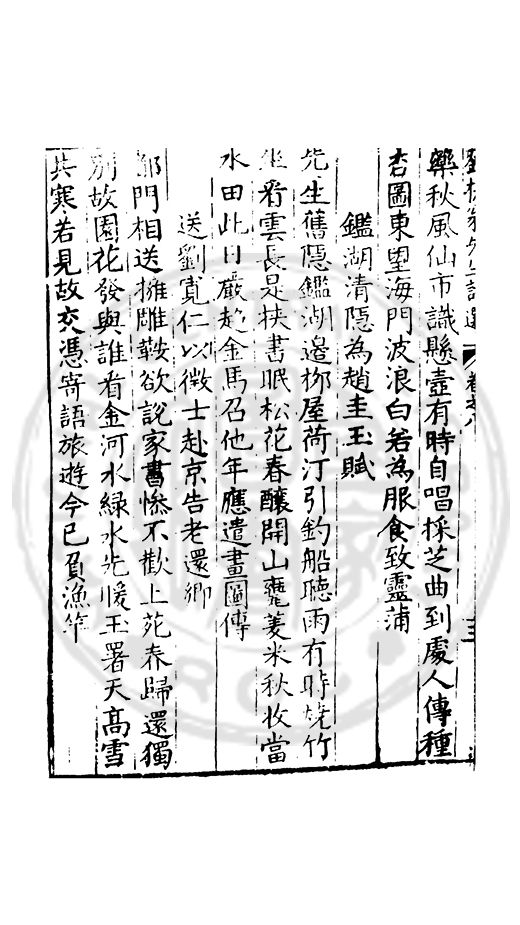 藥秋風仙市識懸壺有時自唱採芝曲到處人傳種
杏圖東望海門波浪白若為服食致靈蒲
鑑湖清隱為趙圭玉賦
先生舊隱鑑湖邉栁屋荷汀引釣船聴雨有時燒竹
坐看雲長是挟書眠松花春釀開山甕菱米秋收當
水田此日嚴趍金馬召他年應遣畫圖傳
送劉寛仁以徴士赴京告老還鄉
都門相送擁雕鞍欲說家書慘不歡上苑春歸還獨
别故園花發與誰看金河水緑水先暖玉署天髙雪
共寒若見故交憑寄語旅遊今已負漁竿